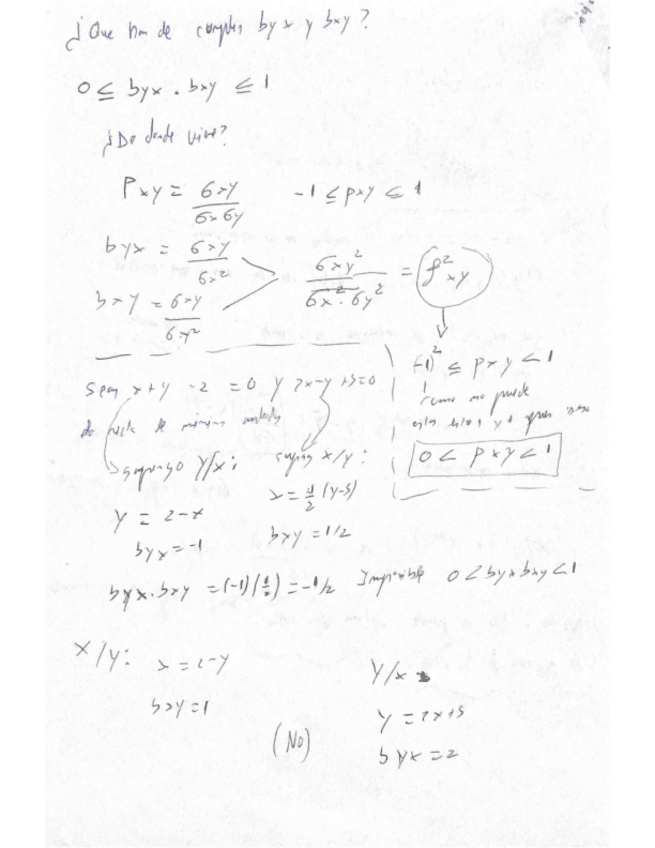 ¿Que han de cumplir byx y bxy?
0 ≤ byx . bxy ≤ 1
¿De donde viene?
Pxy = 6xy / 6x 6y    -1 ≤ pxy ≤ 1
byx = 6xy / 6x²
bxy = 6xy / 6y²
6xy² / 6x² . 6y² = ρ²xy
(-1)² ≤ pxy < 1
como no puede
0 < pxy < 1
Sean x+y -2 = 0 y 2x-y+5=0
de minimos
Supongo Y/x:
y = 2-x
byx = -1
supong X/y:
x = 1/2 (y-5)
bxy = 1/2
byx . bxy = (-1)(1/2) = -1/2 Imposible 0 < byx bxy < 1
X/y:
x = 2-y
bxy = 1
Y/x
y = 2x+5
byx = 2
(No)